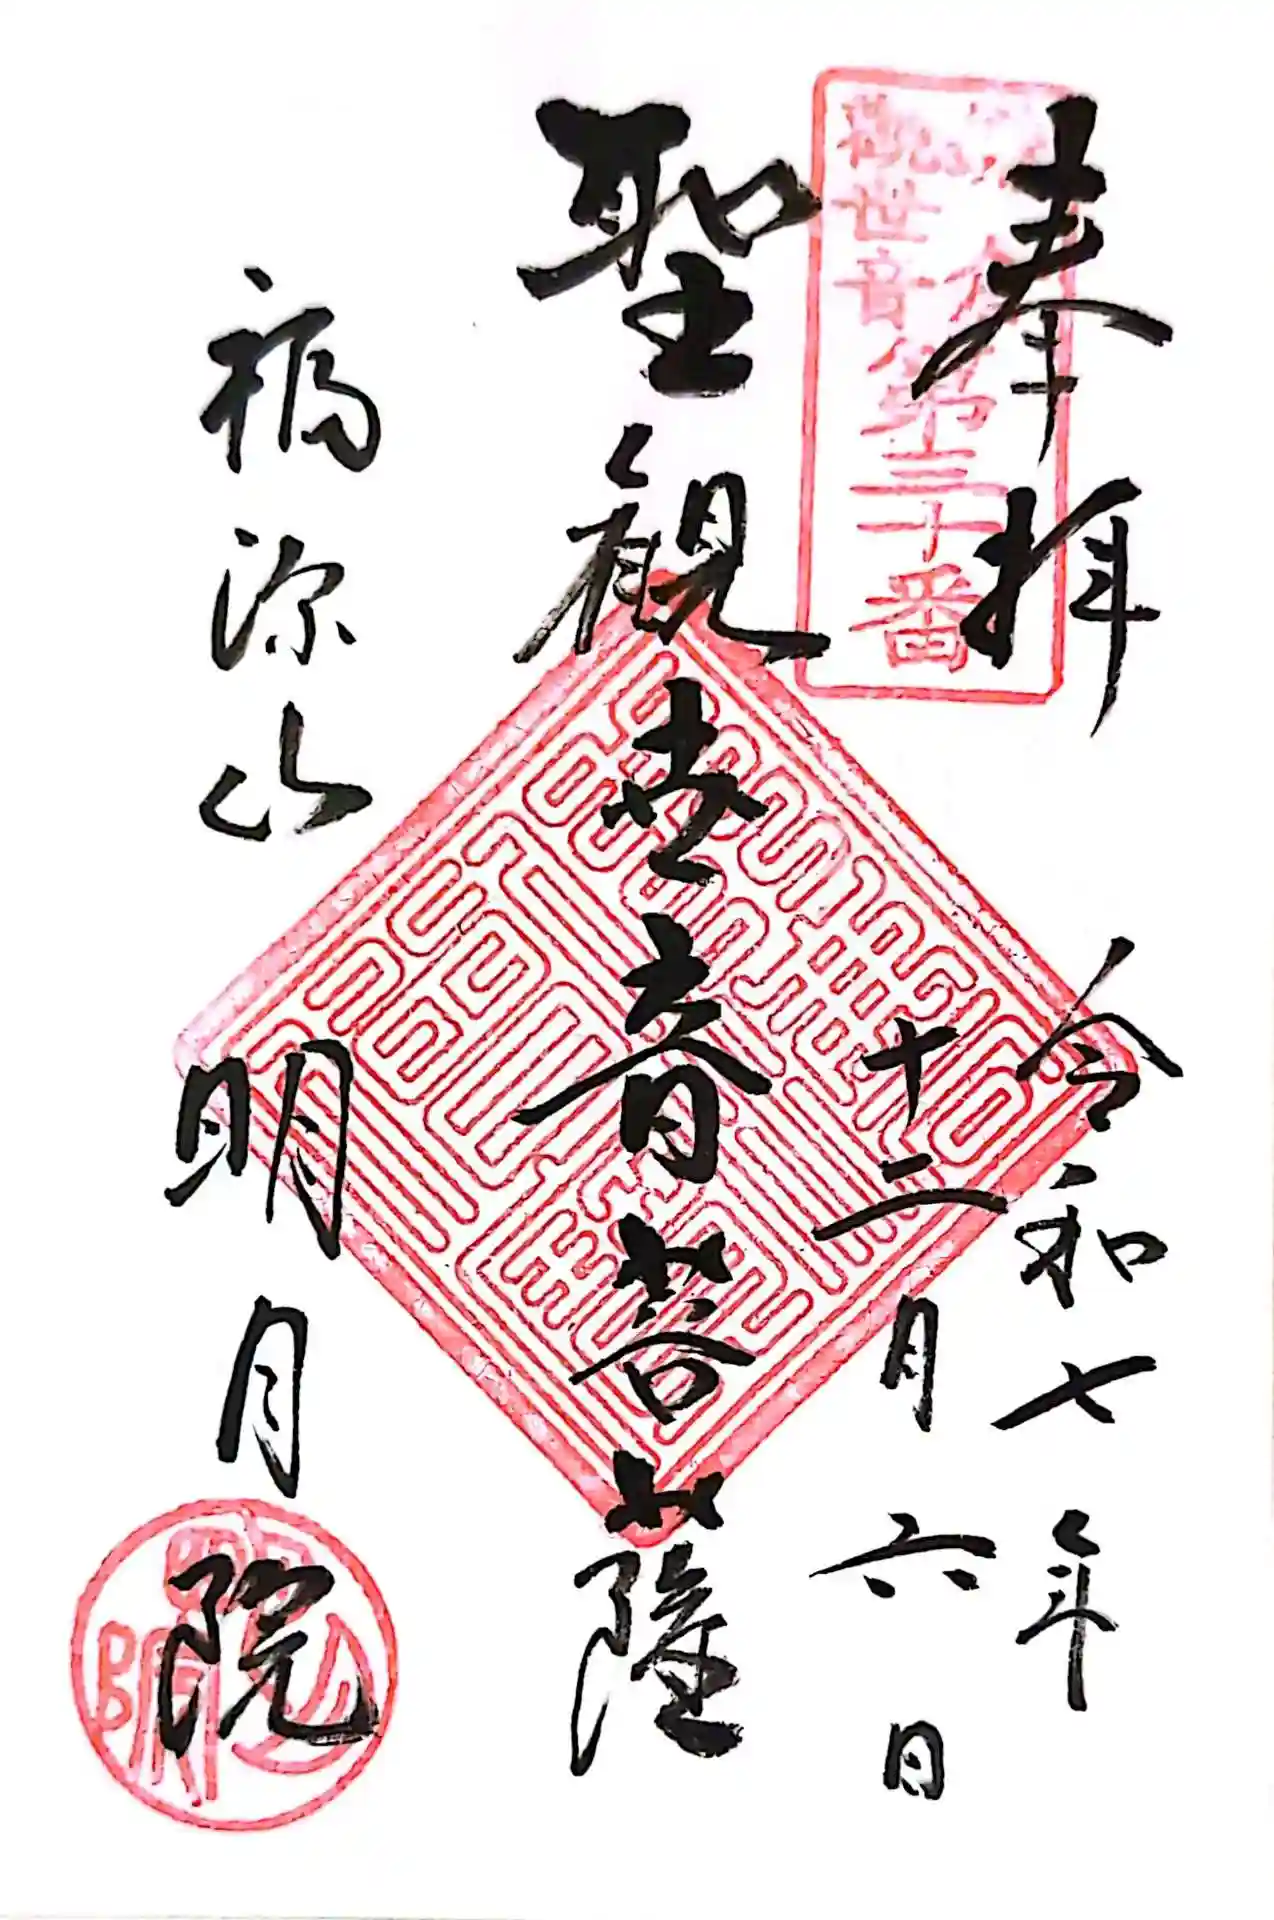 奉拝
令和七年
十二月六日
観世音
第三十番
聖観世音菩薩
福源山
明月院